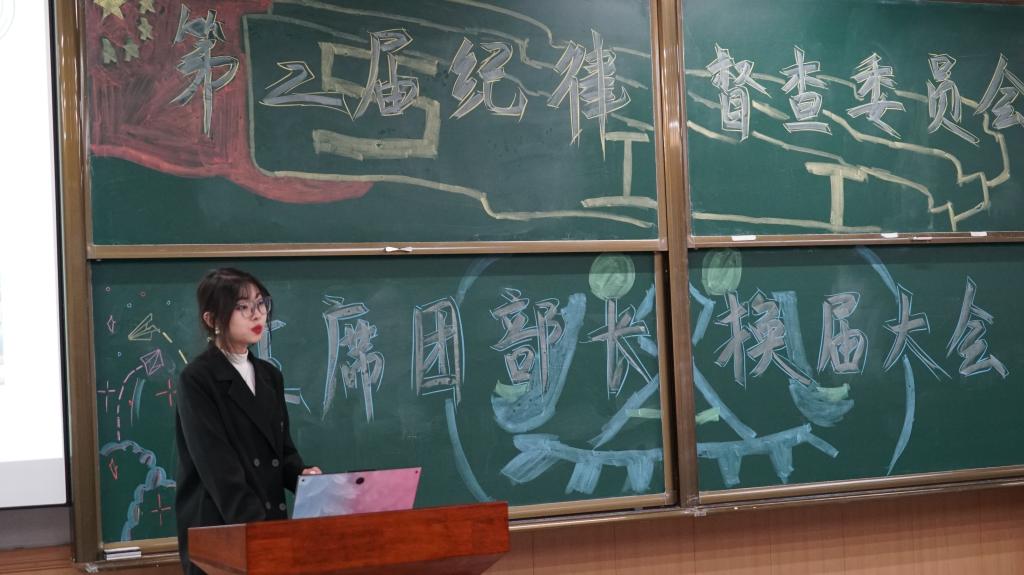 第2届纪律督查委员会
主席团部长换届大会